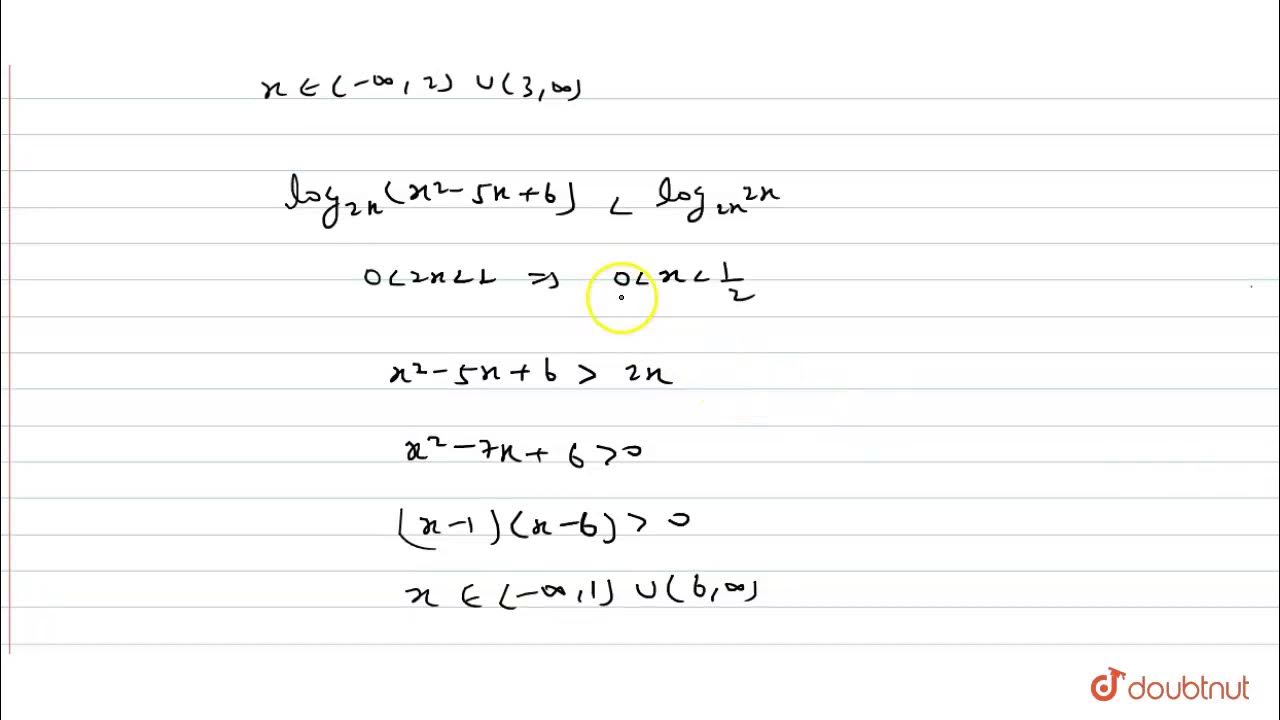 x ∈ (-∞, 2) ∪ (3, ∞)
log₂ₓ(x² - 5x + 6) < log₂ₓ2x
0 < 2x < 1 ⇒ 0 < x < 1/2
x² - 5x + 6 > 2x
x² - 7x + 6 > 0
(x - 1)(x - 6) > 0
x ∈ (-∞, 1) ∪ (6, ∞)
doubtnut